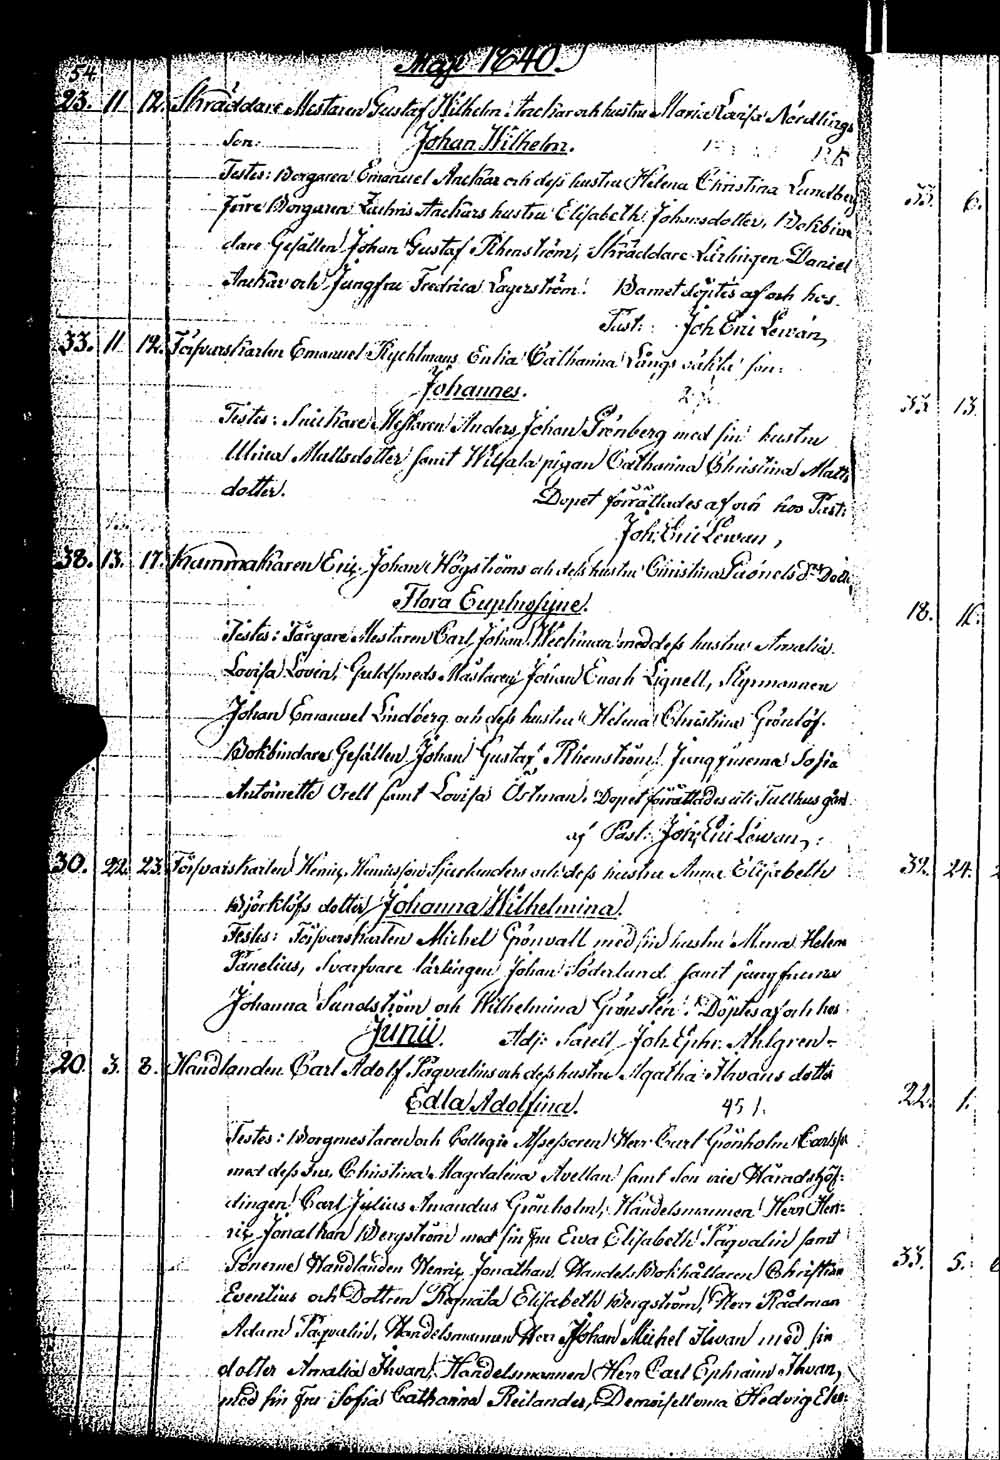 54.
Maji 1840.
23. 11 12. Skräddare Mestaren Gustaf Wilhelm Anckar och hustru Maria Lovisa Nordlings
Son: Johan Wilhelm.
Testes: Borgaren Emanuel Anckar och dess hustru Helena Christina Lundberg
förre Borgaren Zachris Anckars hustru Elisabeth Johansdotter, Bokbin
dare Gesällen Johan Gustaf Rhenström, Skräddare Lärlingen Daniel
Anckar och Jungfru Fredrica Lagerström. Barnet döptes af och hos
Past: Joh Eric Lewan,
33. 11 12. Törsvarskarlen Emanuel Enkia Catharina Långs oäkta son:
Johannes.
Testes: Snickare Mestaren Anders Johan Grönberg med sin hustru
Mina Mattsdotter samt Wilsala pigan Catharina Christina Matts
dotter. Dopet förrättades af och hos Past:
Joh: Eric Lewan,
38. 13. 17. Kammakaren Eric Johan Högströms och dess hustru Christina Dott:
Flora Euphrosyne.
Testes: Färgare Mestaren Carl Johan Weckman med dess hustru Amalia
Lovisa Lovén, Guldsmeds Mästaren Johan Enoch Lignell, Styrmannen
Johan Emanuel Lindberg och dess hustru Helena Christina Grönlöf.
Bokbindare Gesällen Johan Gustaf Rhenström, Jungfruerna Sofia
Antoinette Orell samt Lovisa Östman. Dopet förrättades uti Tullhus gård
af Past: Joh: Eric Lewan,
30. 22. 23. Försvarskarlen Henric Henricsson Sjurlanders och dess hustru Anna Elisabeth
Björklöfs dotter Johanna Wilhelmina.
Testes: Försvarskarlen Michel Grönvall med sin hustru Mena Helena
Tanelius, Svarfvare lärlingen Johan Söderlund samt jungfruerna
Johanna Sundström och Wilhelmina Grönstén. Döptes af och hos
Junii. Adj: Joh. Ephr. Ahlgren
20. 3. 8. Handlanden Carl Adolf Pägvalins och dess hustru Agatha Ihvans dotter
Edla Adolfina. 45
Testes: Borgmestaren och Collegie Assessoren Herr Carl Grönholm
med dess Fru Christina Magdalena Avellan samt Son vice Häradshöf-
dingen Carl Julius Amandus Grönholm, Handelsmannen Herr Hen-
ric Jonathan Bergström med sin fru Ewa Elisabeth Pägvalin samt
Sönerne Handlanden Henric Jonathan, Handels Bokhållaren Christian
Eventius och Dottren Renata Elisabeth Bergström, Herr Rådman
Adam Pägvalin, Handelsmannen Herr Johan Michel Ihvan med sin
dotter Amalia Ihvan, Handelsmannen Herr Carl Ephraim Ihvan,
med sin Fru Sofia Catharina Reilander, Demoisellerna Hedvig
33. 6.
33 13.
18.
32. 24.
22. 1.
33. 5.